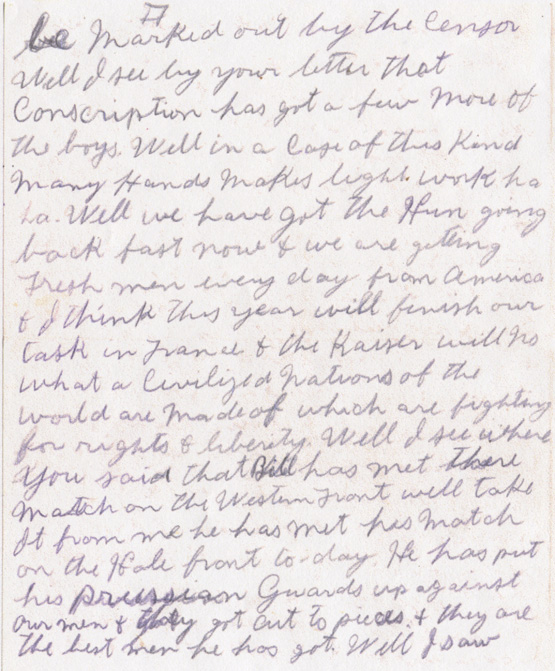 be Marked out by the Censor
Well I see by your letter that
Conscription has got a few More of
the boys. Well in a Case of this Kind
Many Hands Makes light work ha
ha. Well we have got the Hun going
back fast now & we are getting
Fresh men every day from America
& I think this year will finish our
task in France & the Kaiser will no
what a Civilized Nations of the
world are Made of which are fighting
for rights & liberity. Well I see where
You said that Bill has met there
Match on the Western Front well take
It from me he has met his Match
on the Hole front to-day. He has put
his Prussian Guards up against
our men & they got cut to pieces. & they are
the best men he has got. Well I saw